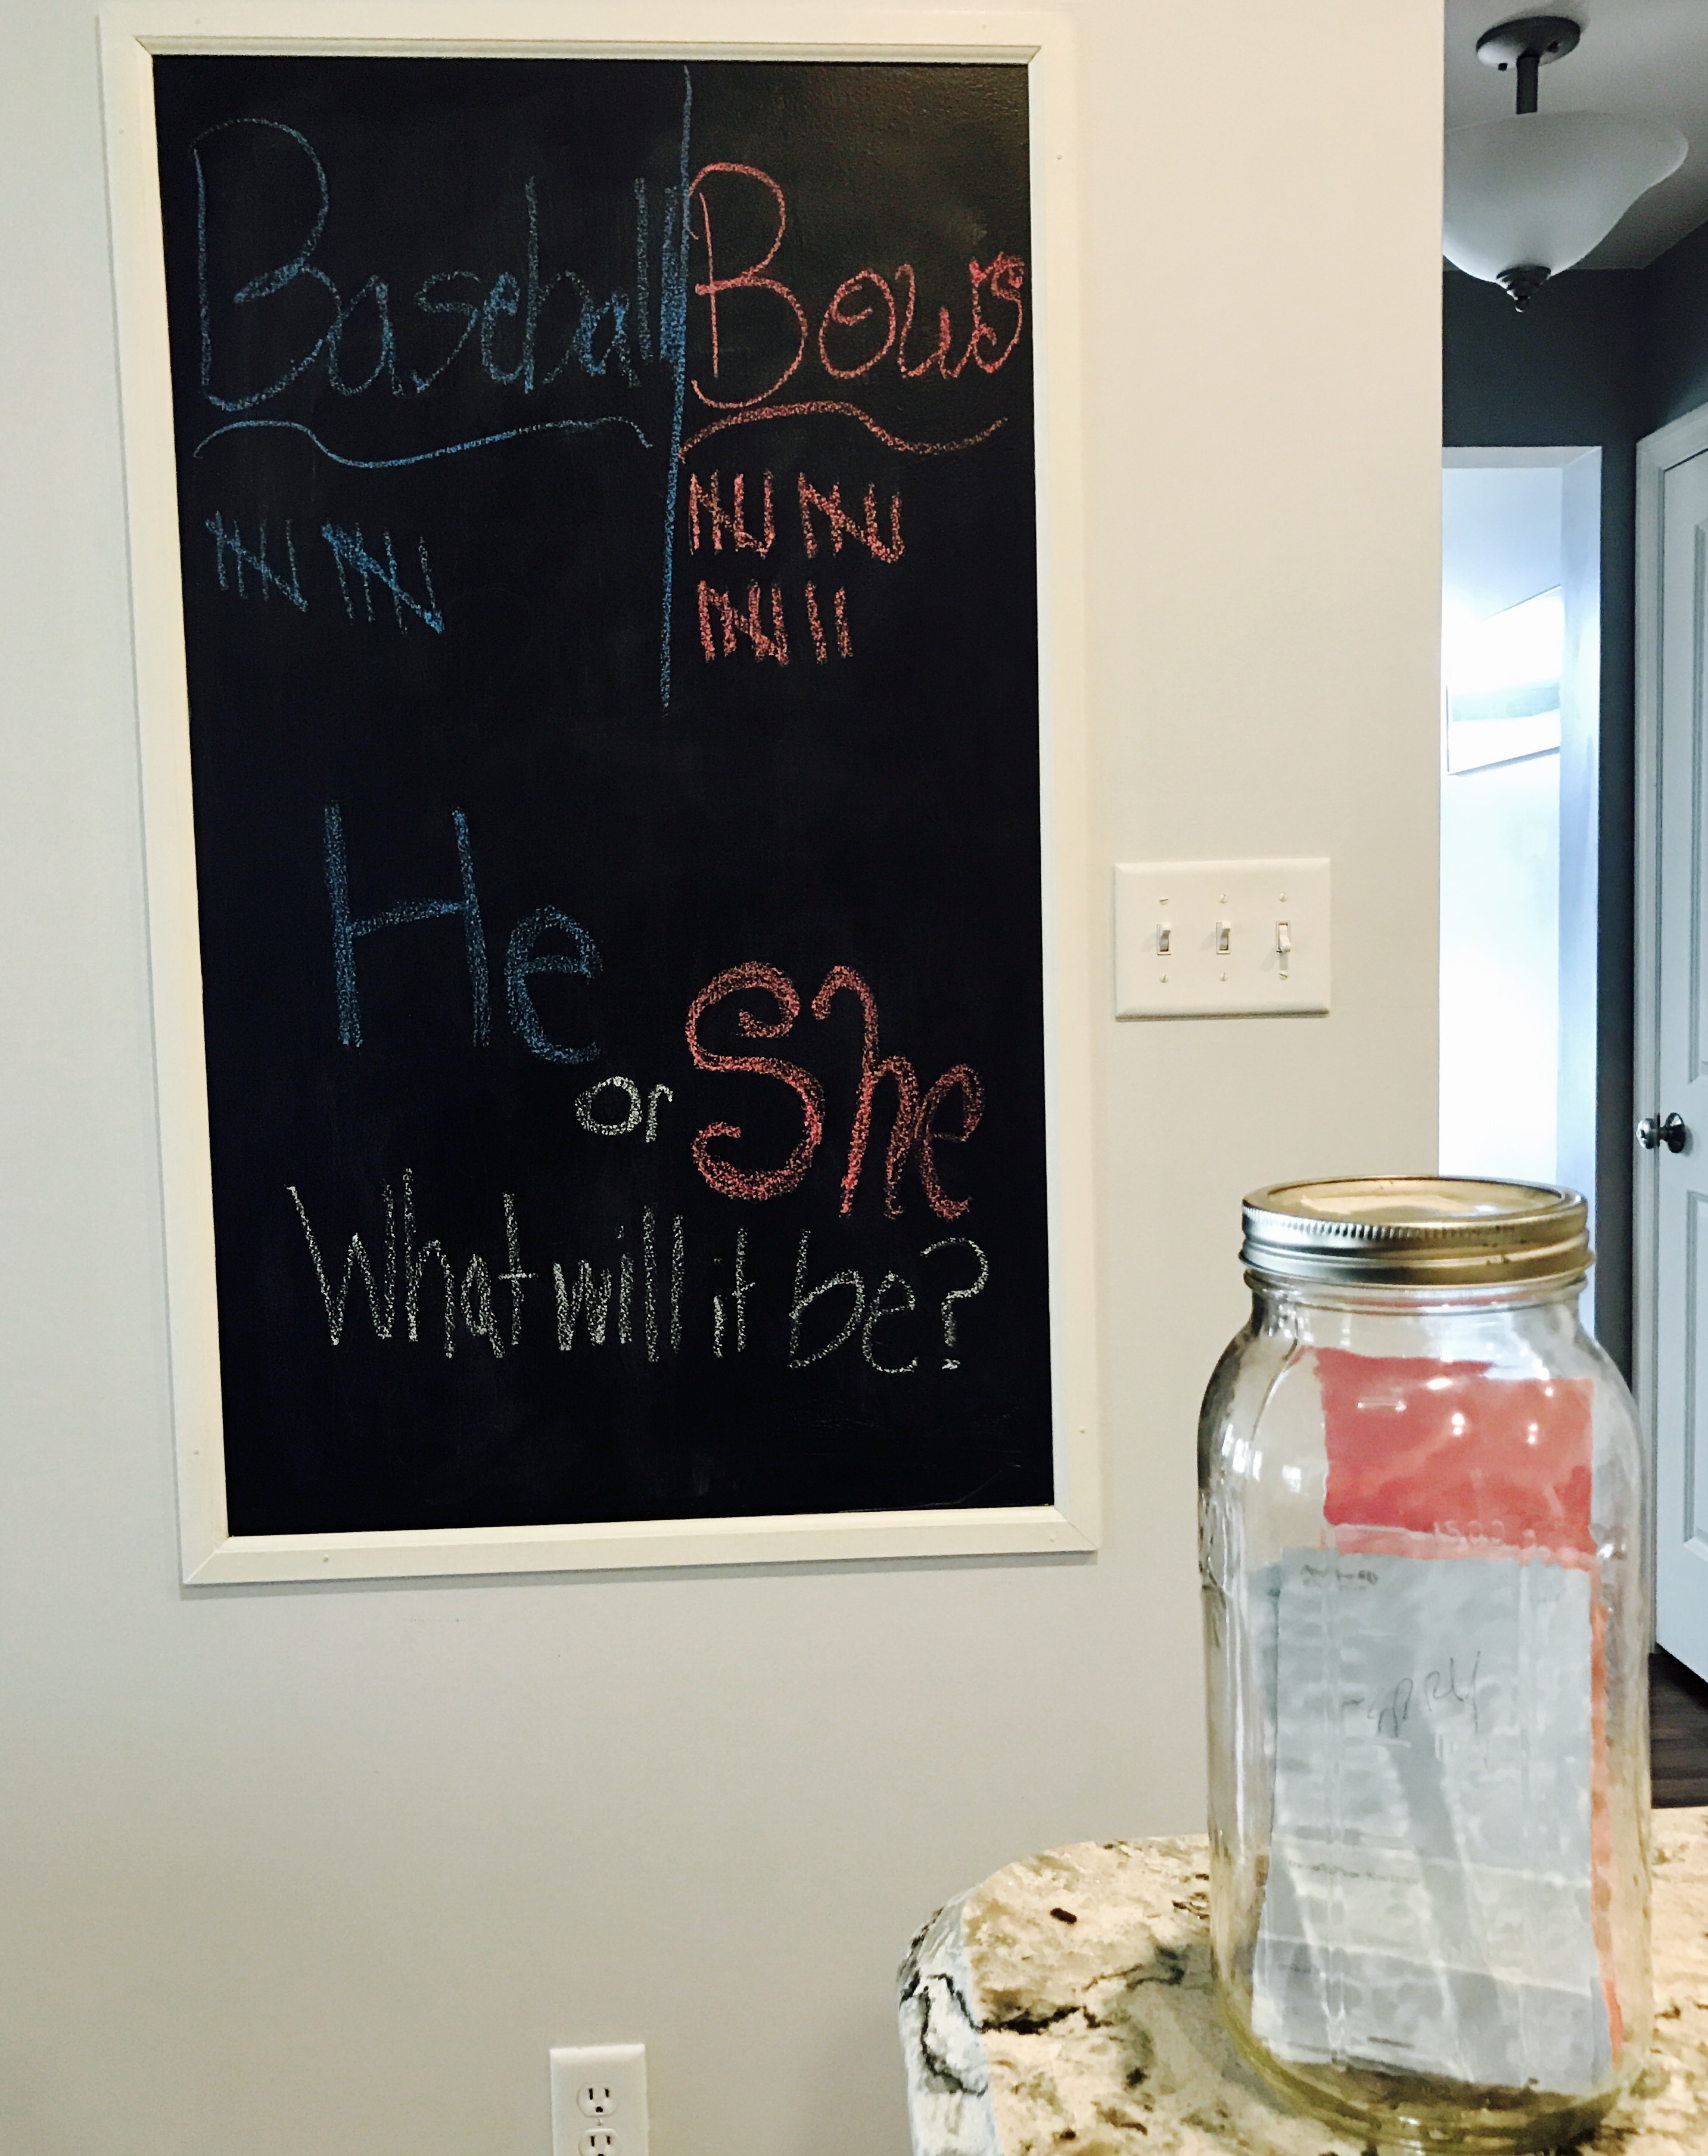 Baseball Bows
He
or She
What will it be?